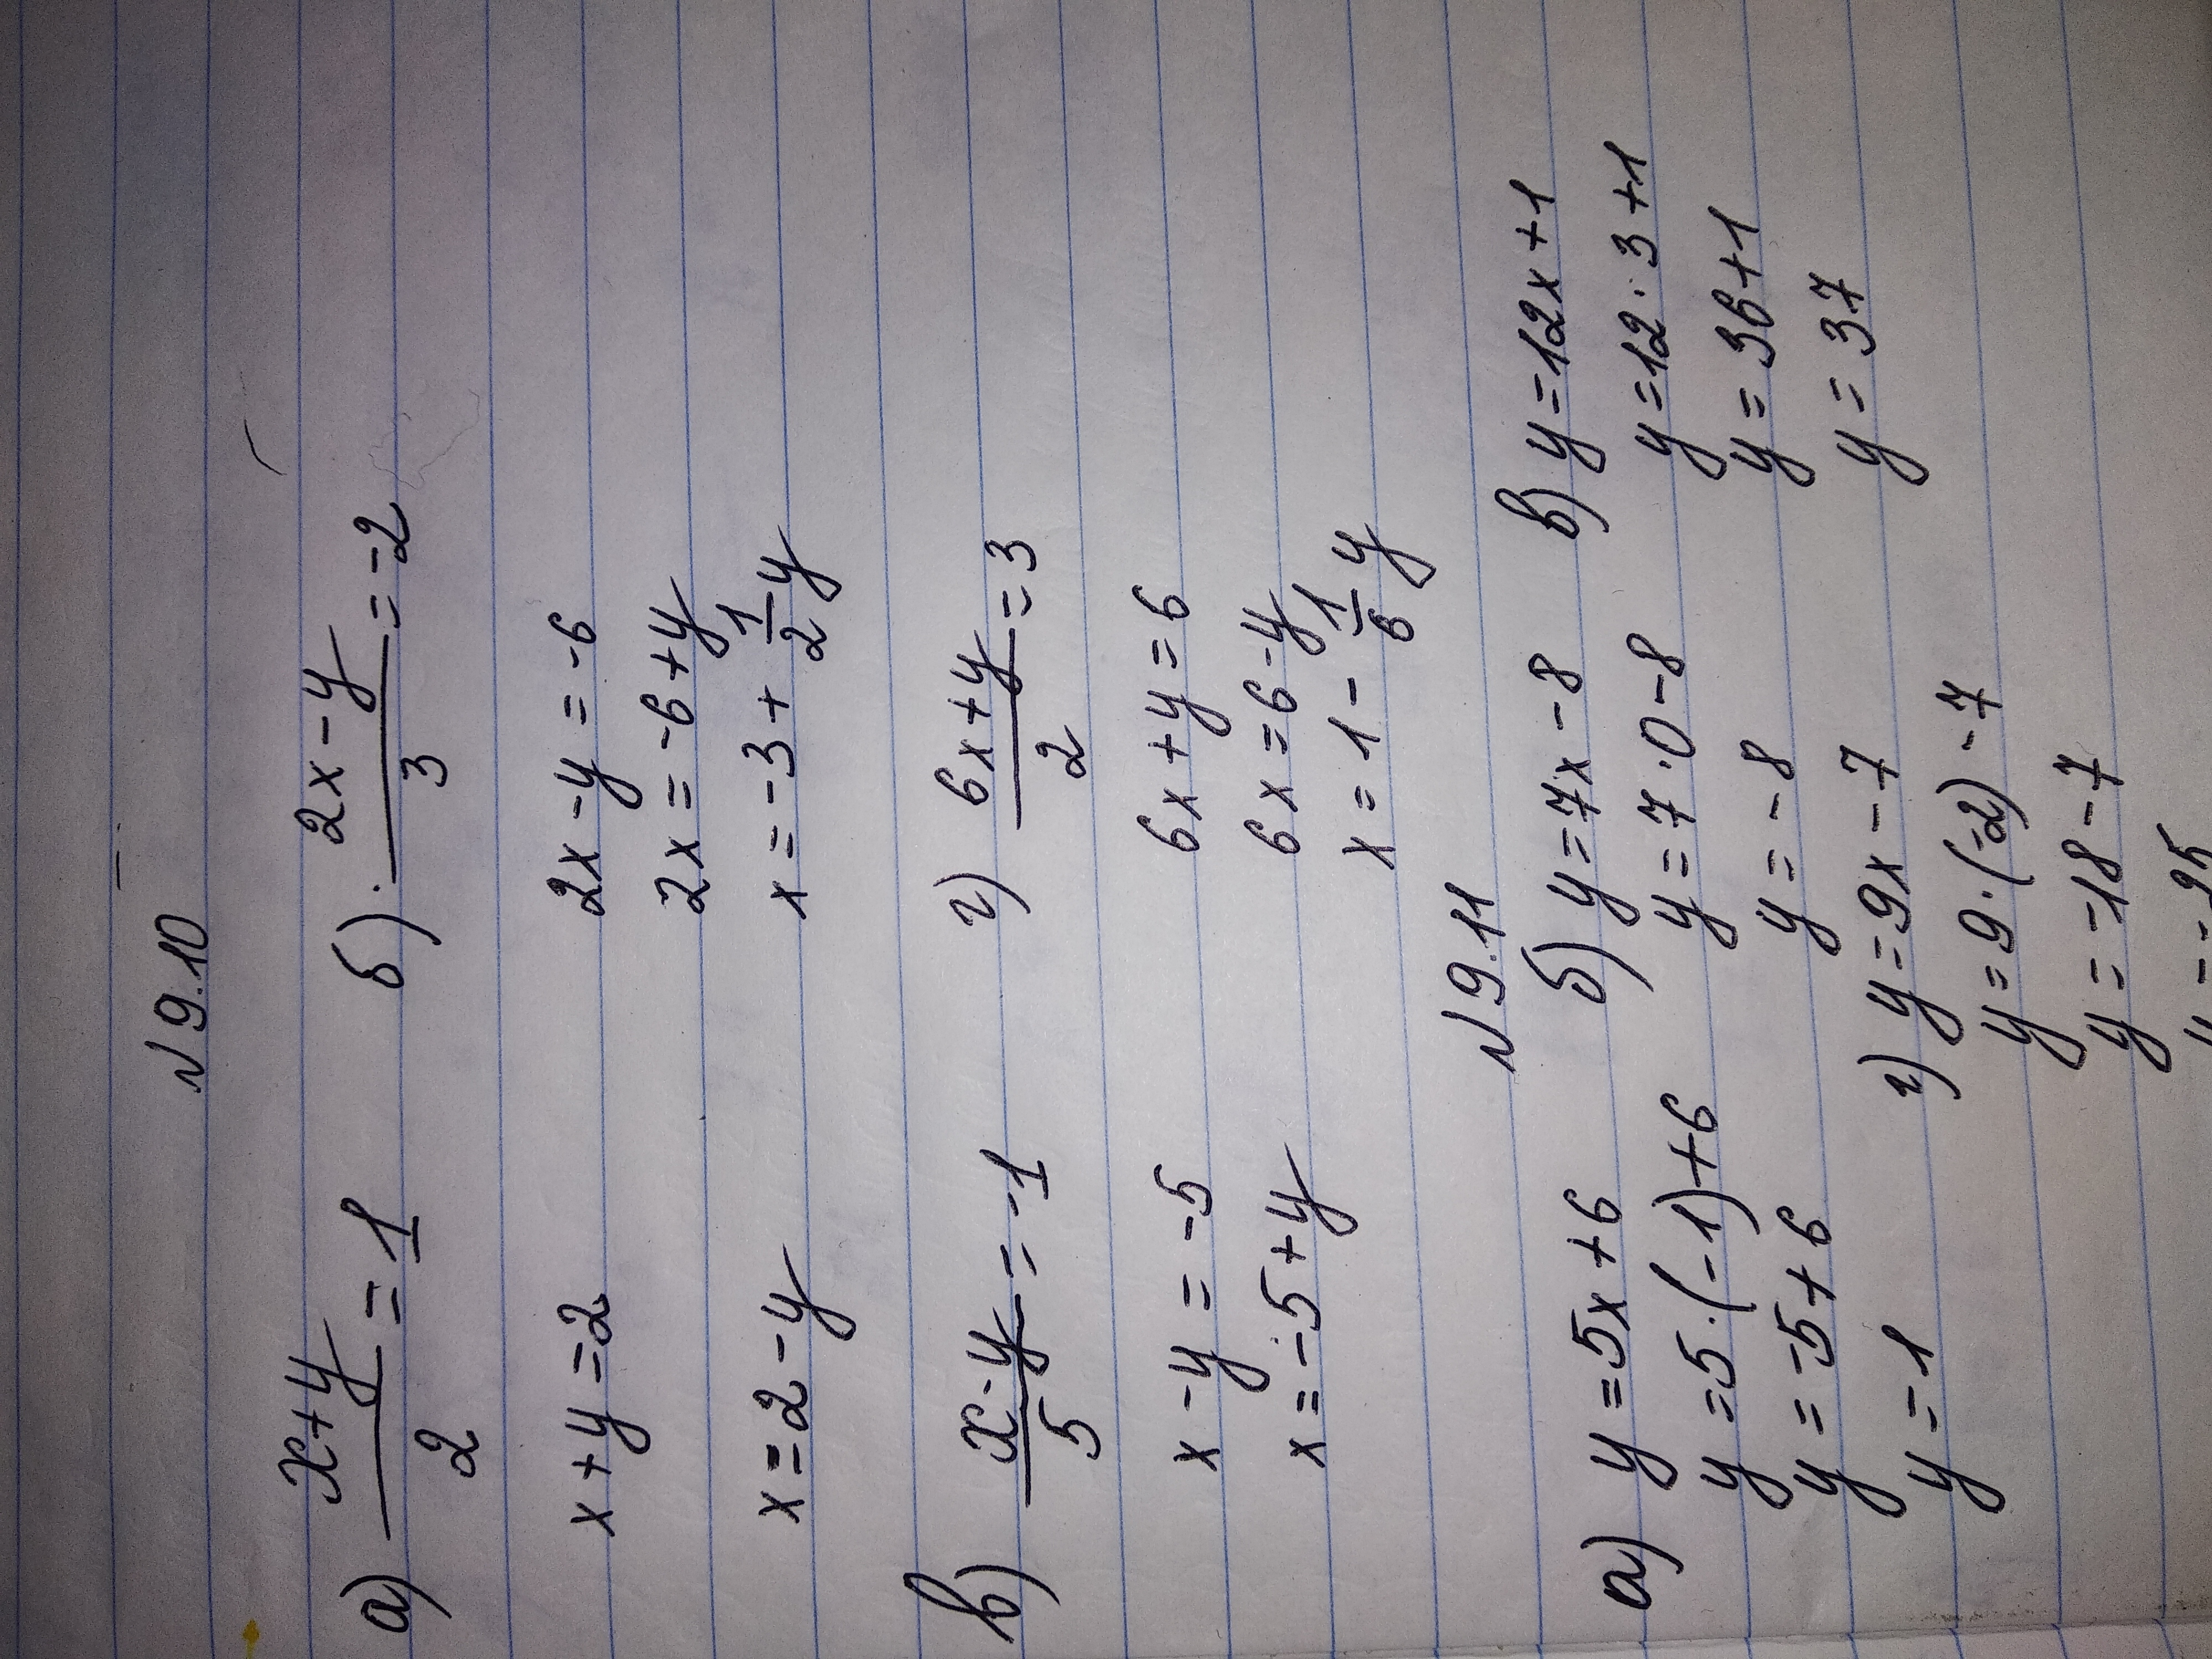 № 9.10
а) x+y/2 = 1 б) 2x-y/3 = -2
x+y=2 2x-y=-6
2x=-6+y
x=2-y x=-3+1/2y
в) x-y/5 = -1 г) 6x+y/2 = 3
x-y=-5 6x+y=6
x=-5+y 6x=6-y
x=1-1/6y
№ 9.11
а) y=5x+6 б) y=7x-8 в) y=12x+1
y=5·(-1)+6 y=7·0-8 y=12·3+1
y=-5+6 y=-8 y=36+1
y=1 г) y=9x-7 y=37
y=9·(-2)-7
y=-18-7
y=-25